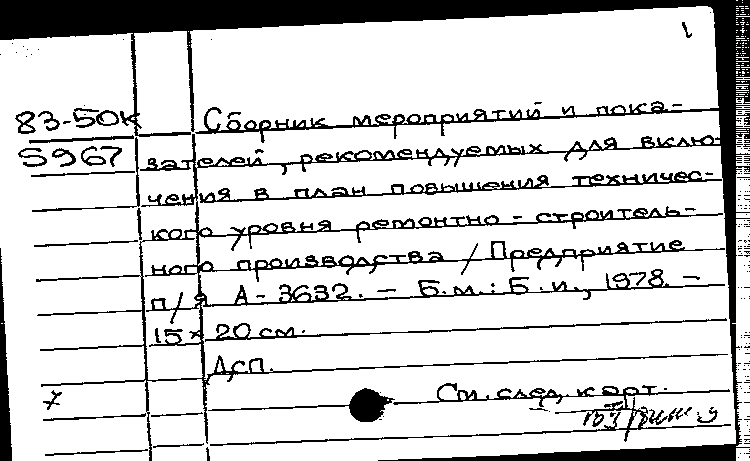 1
83-50К Сборник мероприятий и пока-
5967 зателей, рекомендуемых для вклю-
чения в план повышения техничес-
кого уровня ремонтно-строитель-
ного производства / Предприятие
п/я А-3632. – Б.м.: Б.и., 1978. –
15×20 см.
Дсп.
7 См. след. карт.